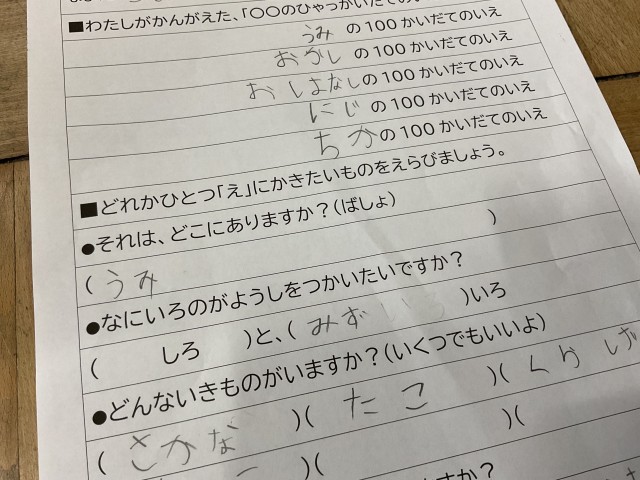 ■わたしがかんがえた、「〇〇のひゃっかいだてのい
うみ の100かいだてのいえ
おかし の100かいだてのいえ
おしはなしの100かいだてのいえ
にじ の100かいだてのいえ
ちかの100かいだてのいえ
■どれかひとつ「え」にかきたいものをえらびましょう。
●それは、どこにありますか?(ばしょ)
(うみ )
●なにいろのがようしをつかいたいですか?
( しろ )と、( みず )いろ
●どんないきものがいますか?(いくつでもいいよ)
( さかな )( たこ )( くらげ
)( )(
すか?